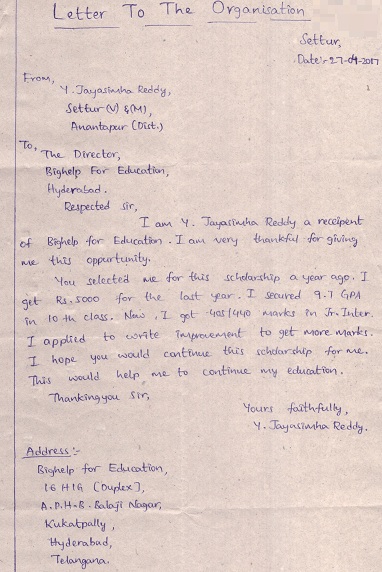 Letter To The Organisation
Settur,
Date:- 27-04-2017
From,
Y. Jayasimha Reddy,
Settur (V) & (M),
Anantapur (Dist.)
To,
The Director,
Bighelp For Education,
Hyderabad.
Respected sir,
I am Y. Jayasimha Reddy a receipent
of Bighelp for Education. I am very thankful for giving
me this oppurtunity.
You selected me for this scholarship a year ago. I
get Rs. 5000 for the last year. I secured 9.7 GPA
in 10 th class. Now, I got 405/440 marks in Jr. Inter.
I applied to write improvement to get more marks.
I hope you would continue this scholarship for me.
This would help me to continue my education.
Thankingyou Sir,
Yours faithfully,
Y. Jayasimha Reddy.
Address:-
Bighelp for Education,
16 HIG (Duplex),
A.P.H.B. Balaji Nagar,
Kukatpally,
Hyderabad,
Telangana.